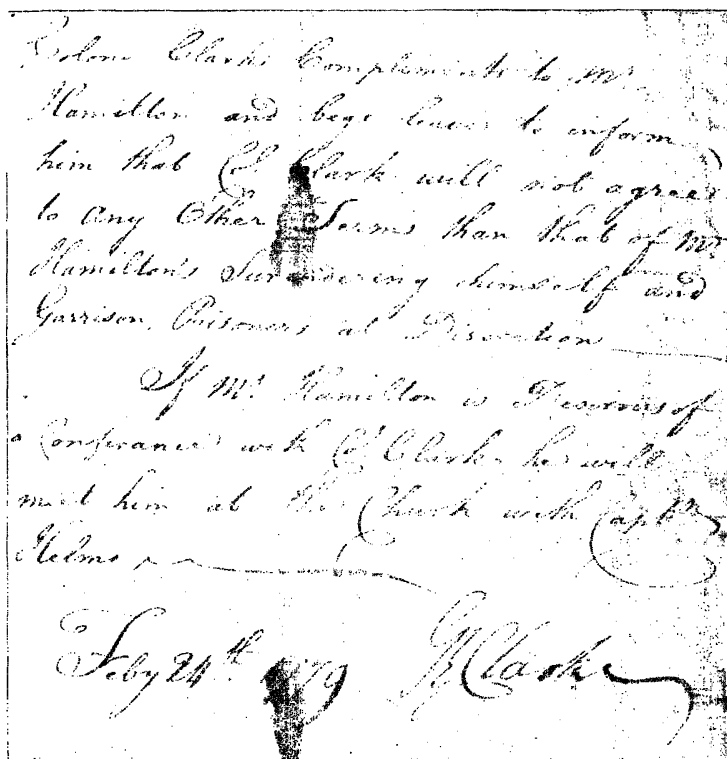 Colonl Clarks Compliments to Mr
Hamilton and begs leave to inform
him that Col. Clark will not agree
to any Other Terms than that of Mr
Hamilton's Surendering himself and
Garrison, Prisoners at Discretion
If Mr Hamilton is Desirous of
a Conferance with Col. Clark he will
meet him at the Church with Captn
Helms
Feby 24th 1779 GR Clark